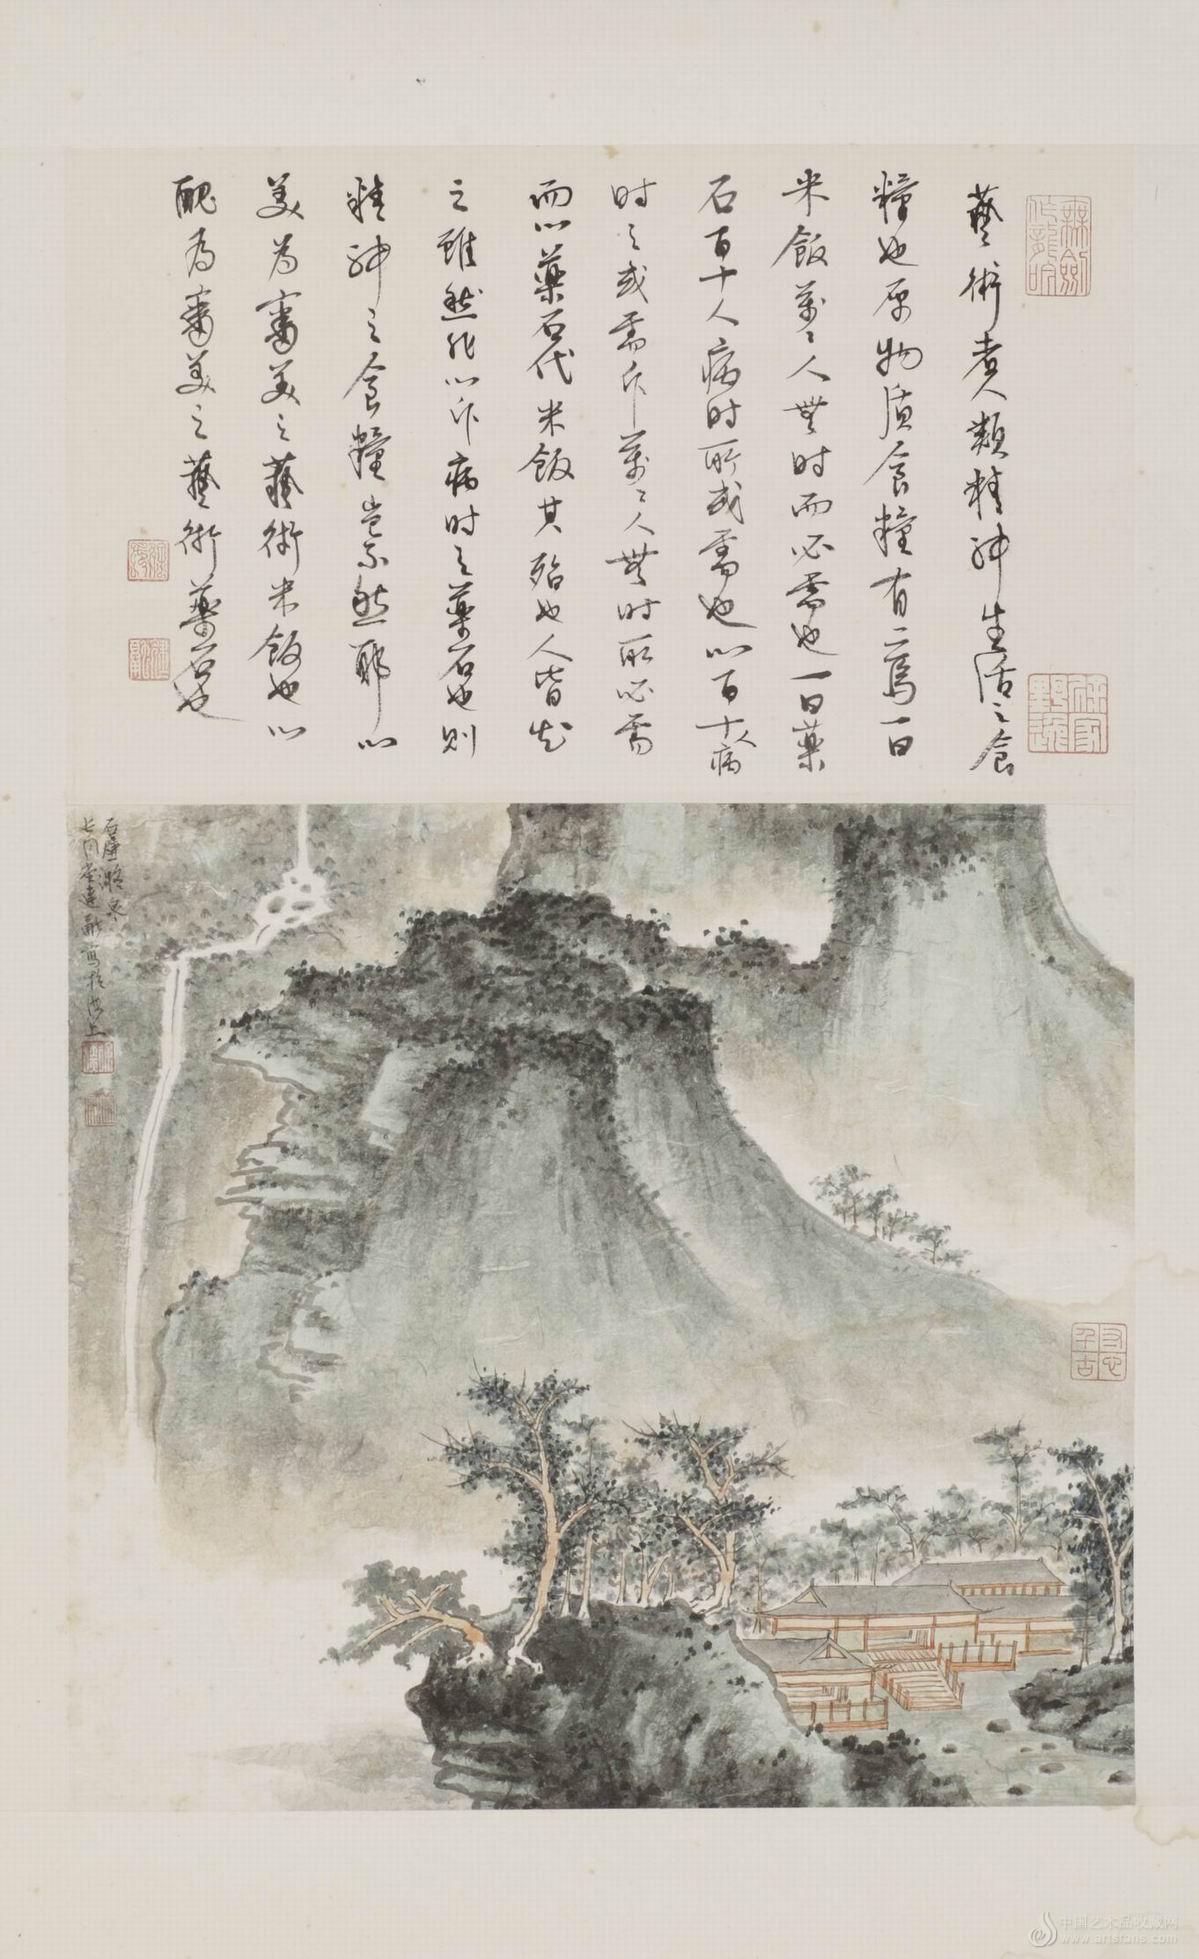 藝術者人類精神生活之食
糧也原物質食糧有二焉一曰
米飯萬々人無時而必需也一曰藥
石百十人病時所或需也以百十人病
時之或需作萬々人無時所必需
而以藥石代米飯其殆也人皆知
之雖然非以作病時之藥石也則
精神之食糧豈不然耶以
美為審美之藝術米飯也以
醜為審美之藝術藥石也
石壁 泉
七月 寫於海上
中国艺术品收藏网
www.artsfans.com